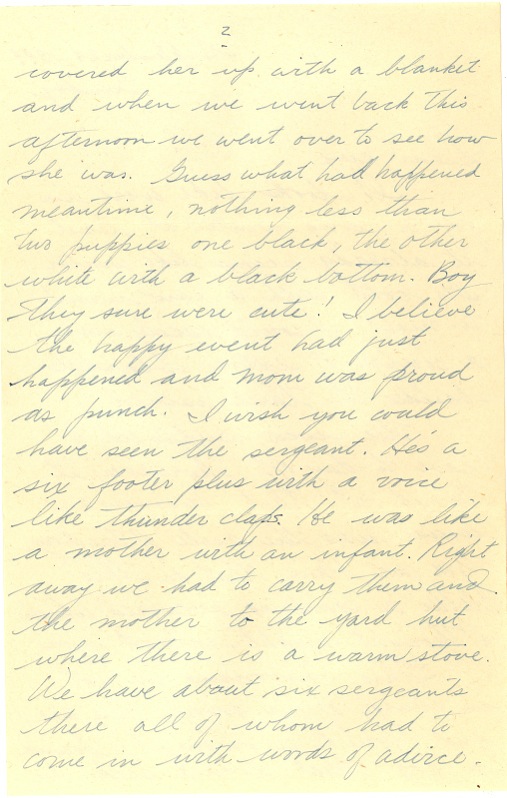 2
covered her up with a blanket
and when we went back this
afternoon we went over to see how
she was. Guess what had happened
meantime, nothing less than
two puppies one black, the other
white with a black bottom. Boy
they sure were cute! I believe
the happy event had just
happened and mom was proud
as punch. I wish you could
have seen the sergeant. He's a
six footer plus with a voice
like thunder claps. He was like
a mother with an infant. Right
away we had to carry them and
the mother to the yard hut
where there is a warm stove.
We have about six sergeants
there all of whom had to
come in with words of advice.